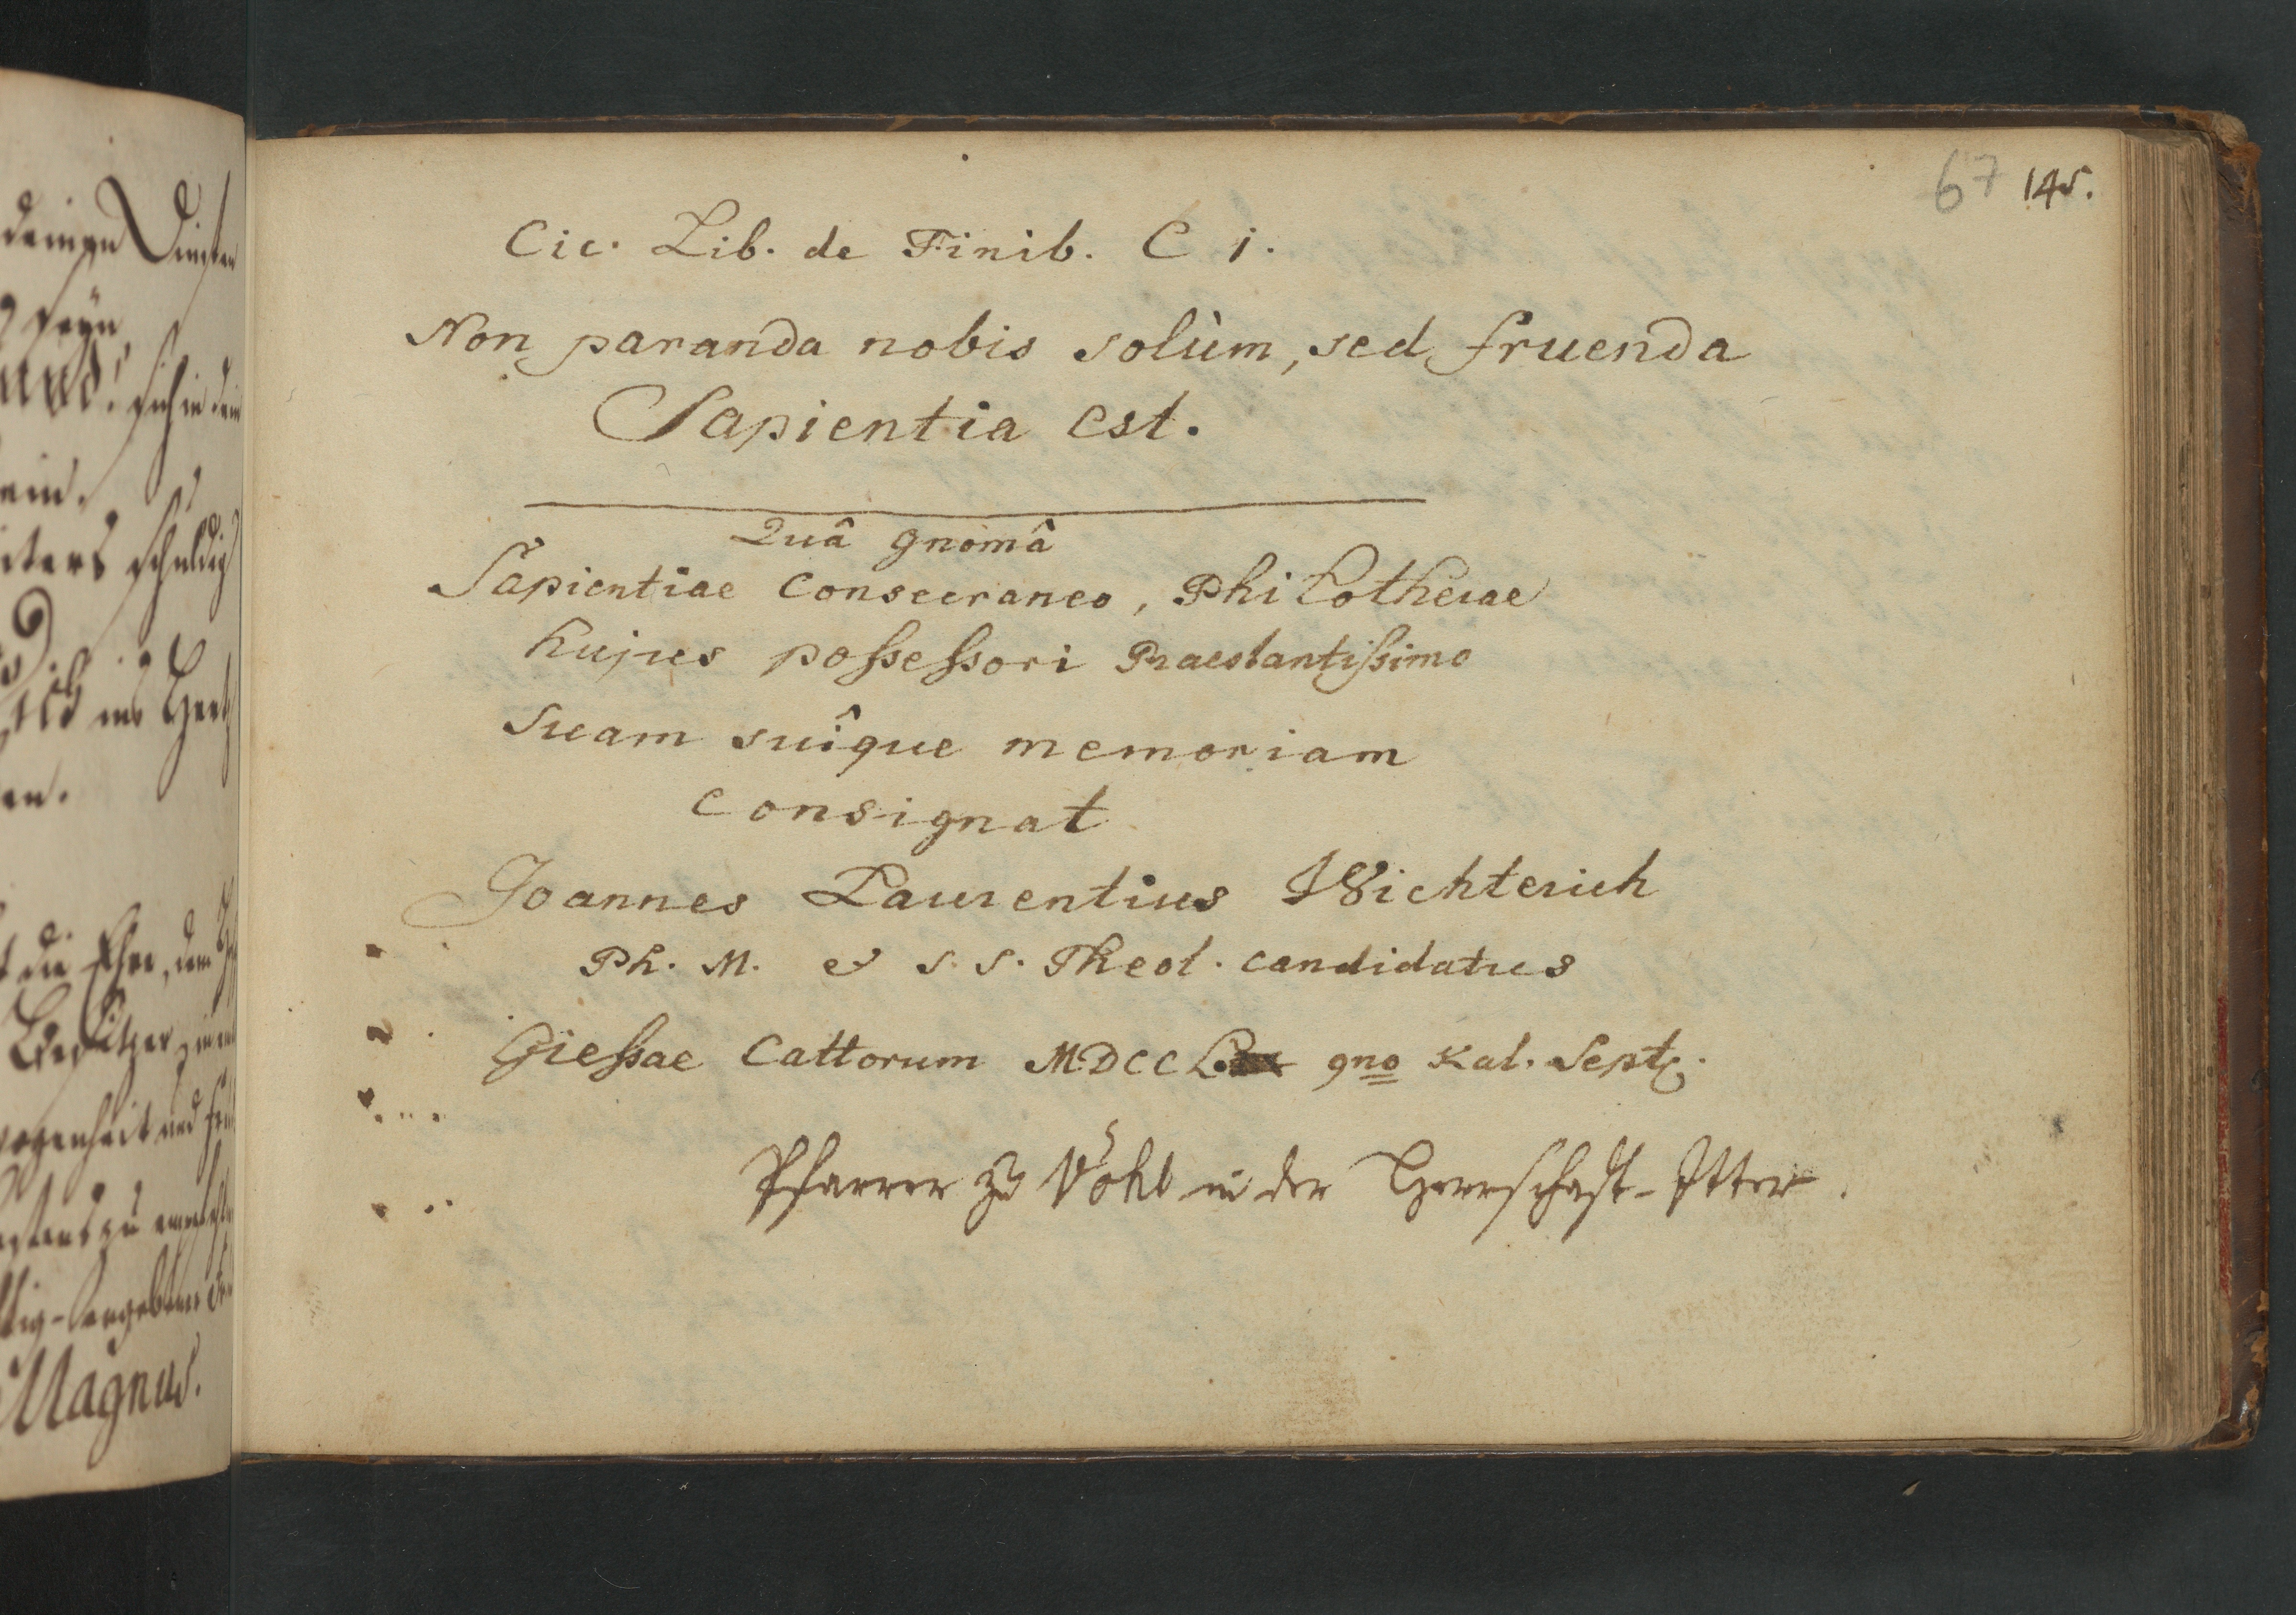 67 145.
Cic. Lib. de Finib. C 1.
Non paranda nobis solùm, sed fruenda
Sapientia est.
Quâ gnomâ
Sapientiae Consecraneo, Philothecae
hujus possessori Praestantissimo
Suam suîque memoriam
consignat
Joannes Laurentius Wichterich
Ph. M. & S. S. Theol. Candidatus
Giessae Cattorum MDCCL 9no Kal. Sept.
Pfarrer zu Vöhl in der Herrschaft-Itter.
seyn,
ein.
schuldig
en.
die Ehre, dem
Besitzer
Magnus.